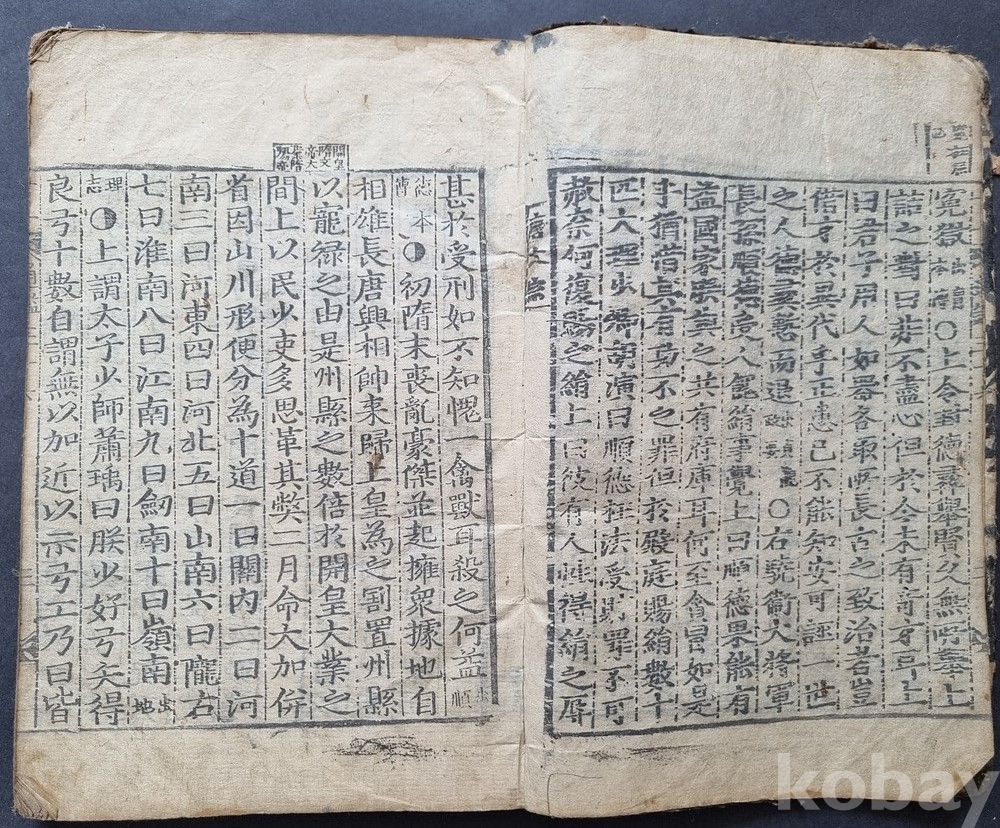 冤獄出本傳○上令封德彝舉賢久無所舉上
詰之對曰非不盡心但於今未有奇才耳上
曰君子用人如器各取所長古之致治者豈
借才於異代乎正患己不能知安可誣一世
之人德彝慙而退○右驍衛大將軍
長孫順德受人餽絹事覺上曰順德果能有
益國家朕與之共有府庫耳何至貪冒如是
乎猶惜其有功不之罪但於殿庭賜絹數十
匹大理少卿胡演曰順德枉法受財罪不可
赦奈何復賜之絹上曰彼有人性得絹之辱
甚於受刑如不知愧一禽獸耳殺之何益出順
德本傳◑初隋末喪亂豪傑並起擁衆據地自
相雄長唐興相帥來歸上皇為之割置州縣
開皇隋文帝大業隋煬帝
以寵祿之由是州縣之數倍於開皇大業之
間上以民少吏多思革其弊二月命大加併
省因山川形便分為十道一曰關內二曰河
南三曰河東四曰河北五曰山南六曰隴右
七曰淮南八曰江南九曰劒南十曰嶺南出地
理志◑上謂太子少師蕭瑀曰朕少好弓矢得
良弓十數自謂無以加近以示弓工乃曰皆
kobay